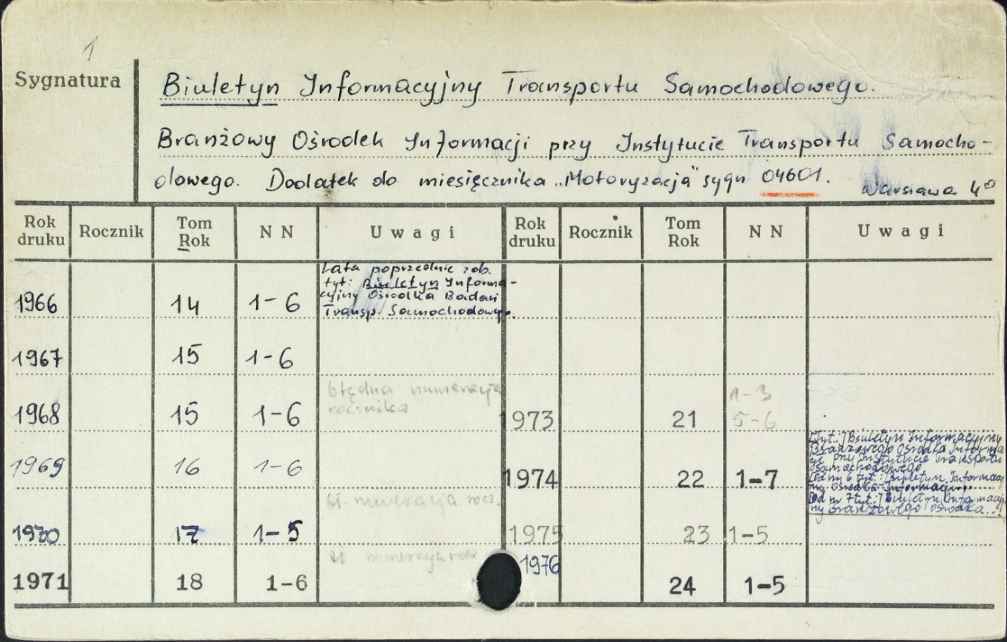 1
Sygnatura
Biuletyn Informacyjny Transportu Samochodowego.
Branżowy Ośrodek Informacji przy Instytucie Transportu Samocho-
dowego. Dodatek do miesięcznika „Motoryzacja" sygn 04601.
Warszawa 4°
Rok druku Rocznik Tom Rok N N Uwagi Rok druku Rocznik Tom Rok N N Uwagi
Lata poprzednie zob.
tyt: Biuletyn Informa-
cyjny Ośrodka Badań
Transp. Samochodowego.
1966 14 1-6
1967 15 1-6
błędna numeracja
rocznika
1968 15 1-6
1973 21 1-3
5-6
1969 16 1-6
1974 22 1-7
[Tyt.:] Biuletyn Informacyjny
Branżowego Ośrodka Informa
cji przy Instytucie Transportu
Samochodowego
[od nr 6 tyt.:] Biuletyn Informacyj
ny Ośrodka Informacji
[od nr 7 tyt.:] Biuletyn Informacyj
ny Branżowego Ośrodka...
bł. numeracja rocz.
1970 17 1-5
1975 23 1-5
bł numeracja
1971 18 1-6
1976 24 1-5